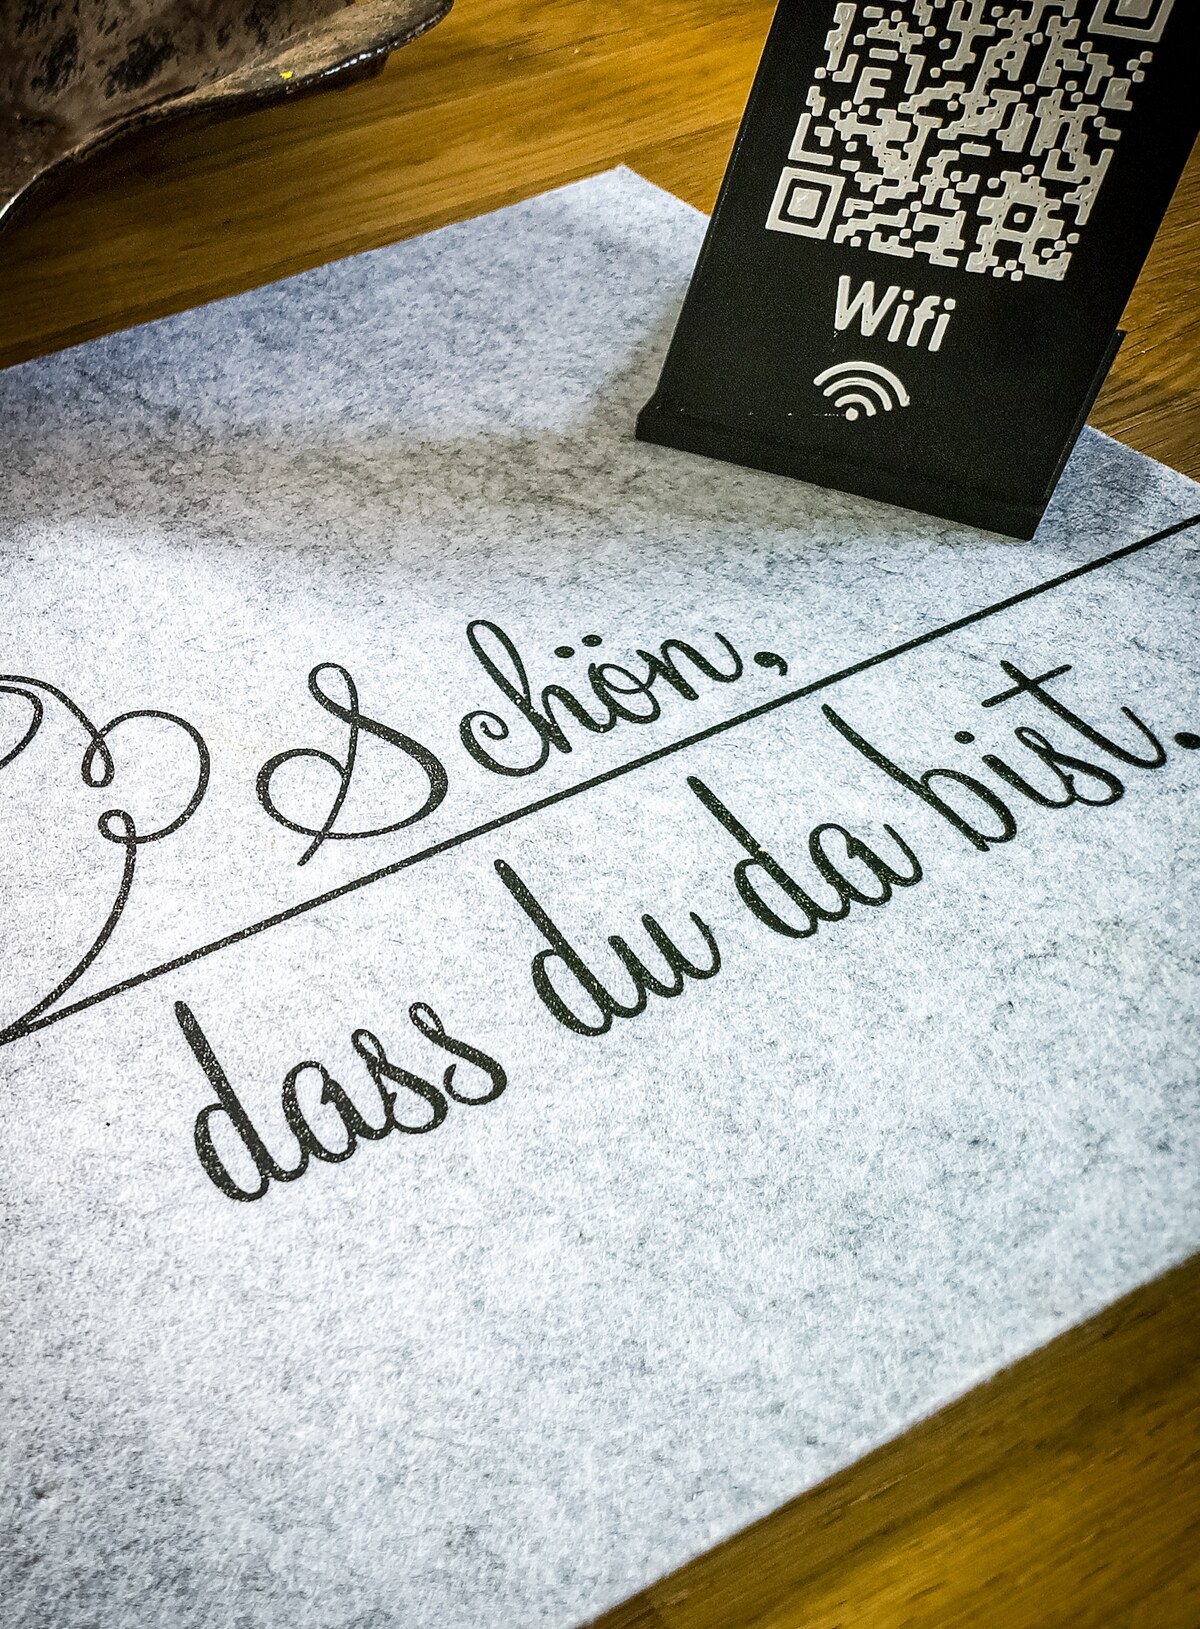 Wifi
Schön,
dass du da bist.